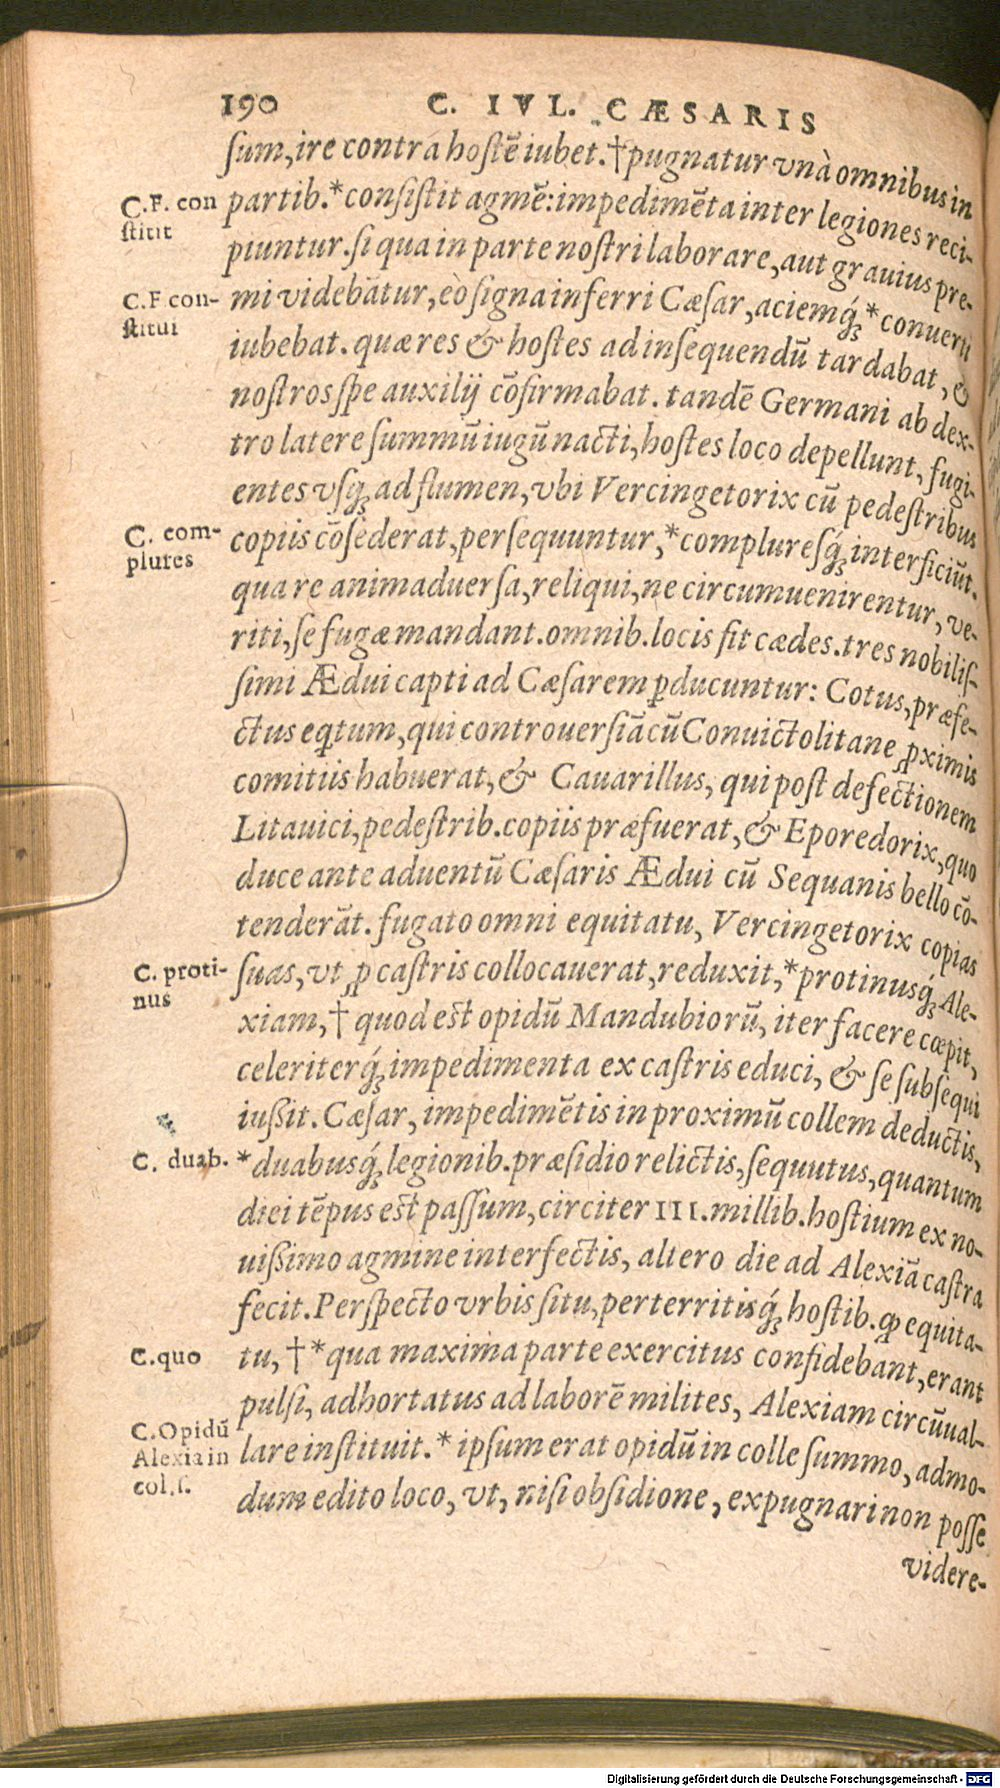 190 C. IVL. CÆSARIS
ſum, ire contrá hoſtē iubet. †pugnatur vnà omnibus in
partib.*conſiſtit agmē: impedimēta inter legiones reci-
piuntur. ſi qua in parte noſtri laborare, aut grauius pre-
mi videbātur, eò ſigna inferri Cæſar, aciemq́; *conuerti
iubebat. quæ res & hoſtes ad inſequendū tardabat, &
noſtros ſpe auxilij cōfirmabat. tandē Germani ab dex-
tro latere ſummū iugū nacti, hoſtes loco depellunt, fugi-
entes vſq; ad flumen, vbi Vercingetorix cū pedeſtribus
copiis cōſederat, perſequuntur, *complureſq́; interficiūt.
qua re animaduerſa, reliqui, ne circumuenirentur, ve-
riti, ſe fugæ mandant. omnib. locis fit cædes. tres nobiliſ-
ſimi Ædui capti ad Cæſarem ꝑducuntur: Cotus, præfe-
ctus eqtum, qui controuerſiā cū Conuictolitane ꝓximis
comitiis habuerat, & Cauarillus, qui poſt defectionem
Litauici, pedeſtrib. copiis præfuerat, & Eporedorix, quo
duce ante aduentū Cæſaris Ædui cū Sequanis bello cō-
tenderāt. fugato omni equitatu, Vercingetorix copias
ſuas, vt ꝓ caſtris collocauerat, reduxit, *protinusq́; Ale-
xiam, † quod eſt opidū Mandubiorū, iter facere cœpit,
celeriterq́; impedimenta ex caſtris educi, & ſe ſubſequi
iuſſit. Cæſar, impedimētis in proximū collem deductis,
*duabusq́; legionib. præſidio relictis, ſequutus, quantum
diei tēpus eſt paſſum, circiter III. millib. hoſtium ex no-
uiſſimo agmine interfectis, altero die ad Alexiā caſtra
fecit. Perſpecto vrbis ſitu, perterritisq́; hoſtib. ꝙ equita-
tu, †*qua maxima parte exercitus confidebant, erant
pulſi, adhortatus ad laborē milites, Alexiam circūual-
lare inſtituit. * ipſum erat opidū in colle ſummo, admo-
dum edito loco, vt, niſi obſidione, expugnari non poſſe
videre-
C.F. con
ſtitit
C.F con-
ſtitui
C. com-
plures
C. proti-
nus
C. duab.
C.quo
C.Opidū
Alexia in
col.ſ.
Digitalisierung gefördert durch die Deutsche Forschungsgemeinschaft - DFG